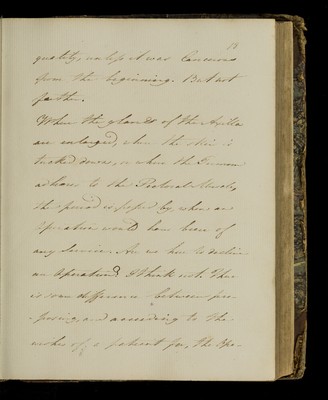 quately, unless it was Cancerous
from the beginning. But not
farther.
When the glands of the Axilla
are enlarged, when the skin is
tucked down, or when the
adheres to the Pectoral Muscle,
the period is passed by, when an
Operation would have been of
any service. Are we here to decline
an Operation? I think not. There
is some difference between pro-
-posing, and according to the
wishes of, a patient for, the Ope-